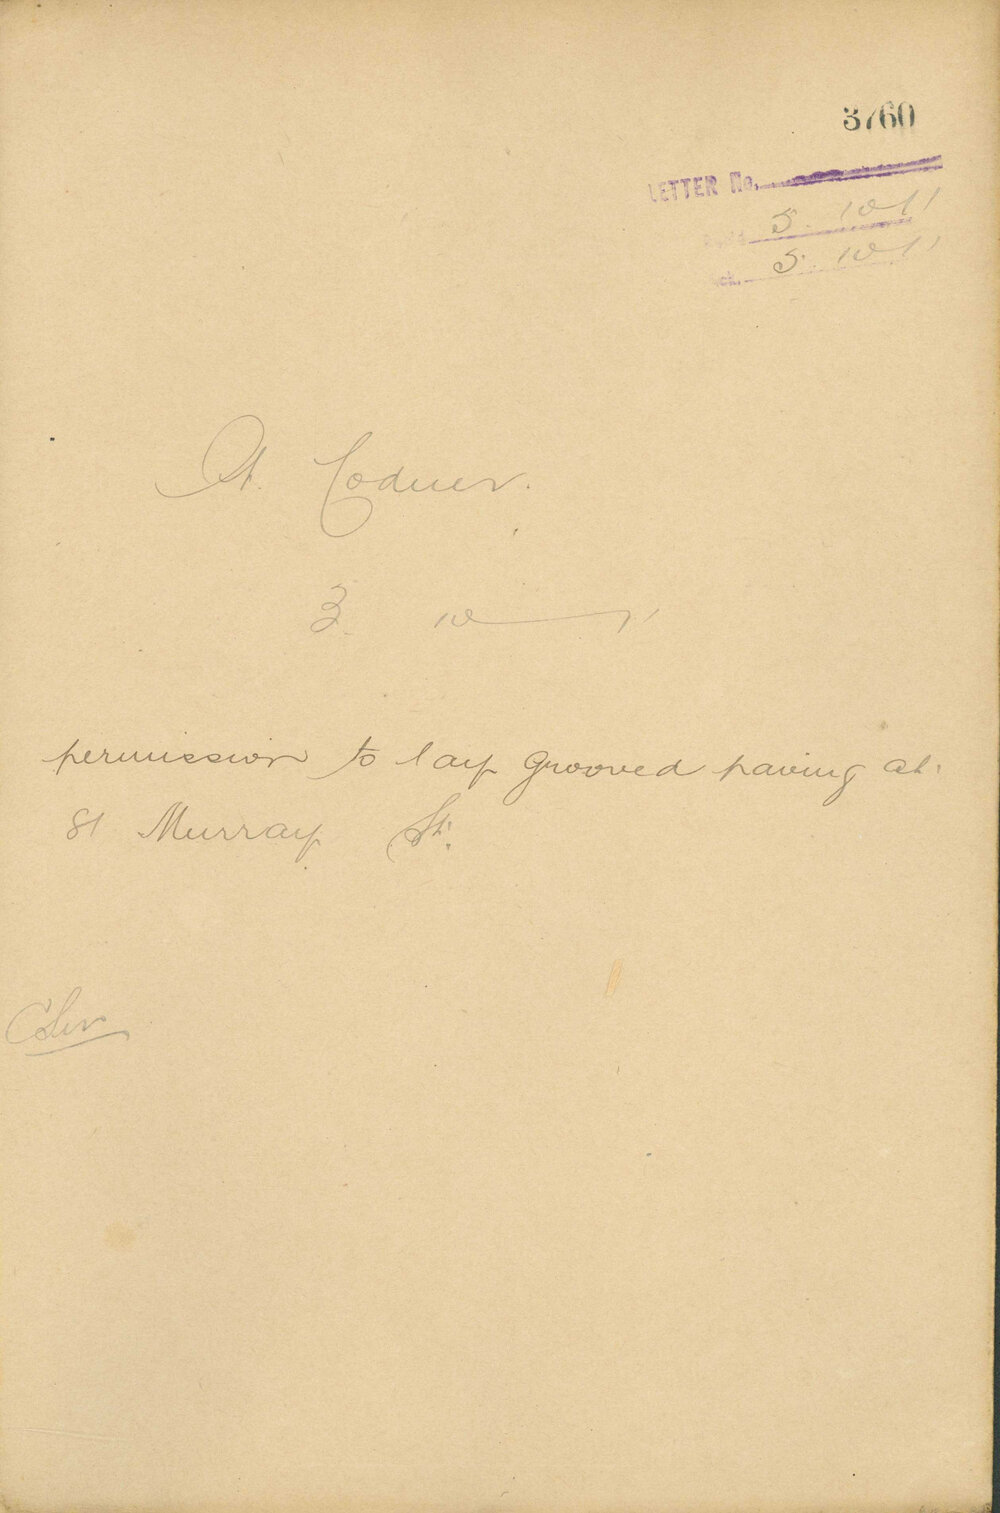 3760
LETTER No.
5. 10 11
Ack. 5. 10 11
A. Codner.
3. 10 11
permission to lay grooved paving at
81 Murray St.